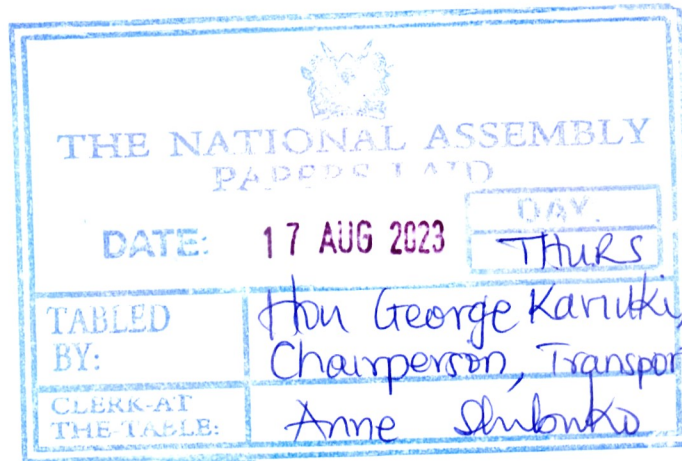 THE NATIONAL ASSEMBLY
PAPERS LAID
DATE: 17 AUG 2023
DAY.
THURS
TABLED BY:
Hon George Kariuki,
Chairperson, Transpor
CLERK-AT THE-TABLE:
Anne